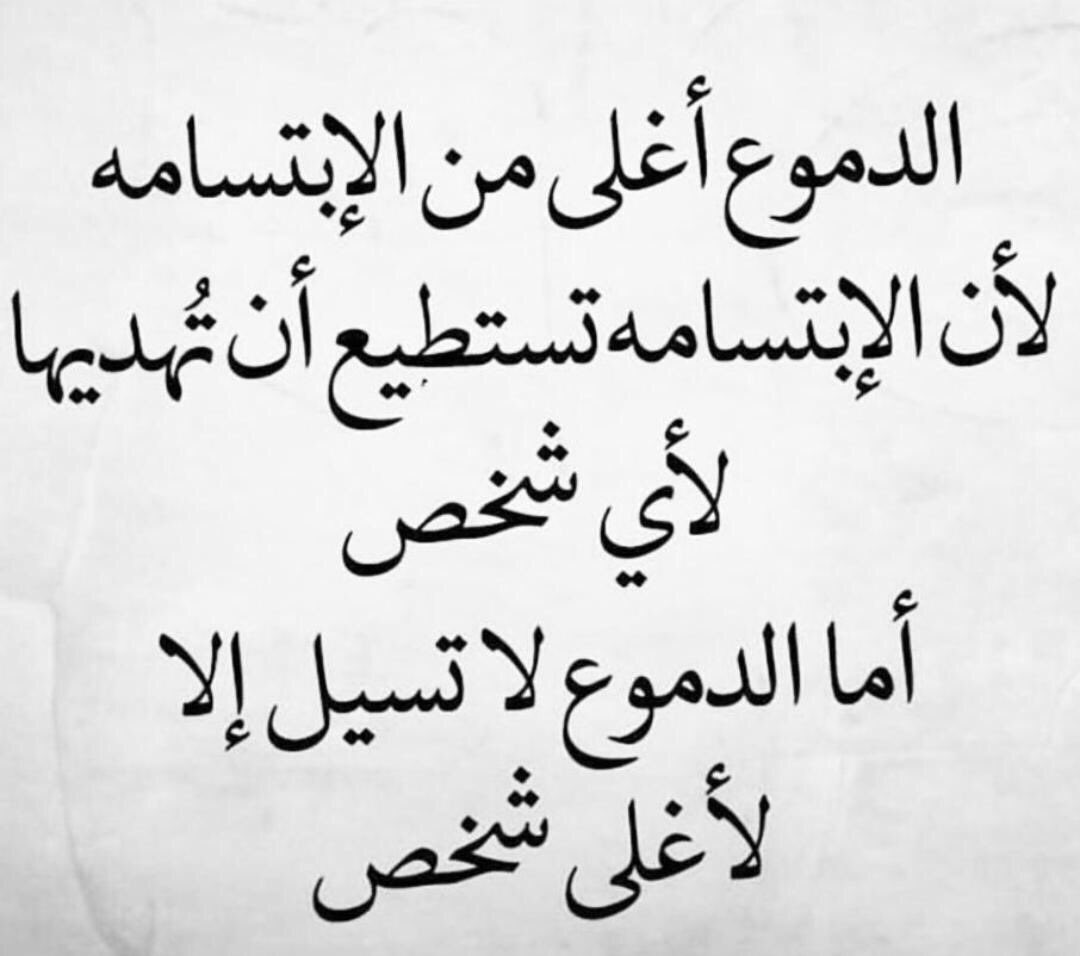 الدموع أغلى من الإبتسامه
لأن الإبتسامه تستطيع أن تُهديها
لأي شخص
أما الدموع لا تسيل إلا
لأغلى شخص